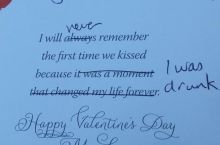 never
I will always remember
the first time we kissed
because it was a moment I was
that changed my life forever. drunk
Happy Valentine's Day